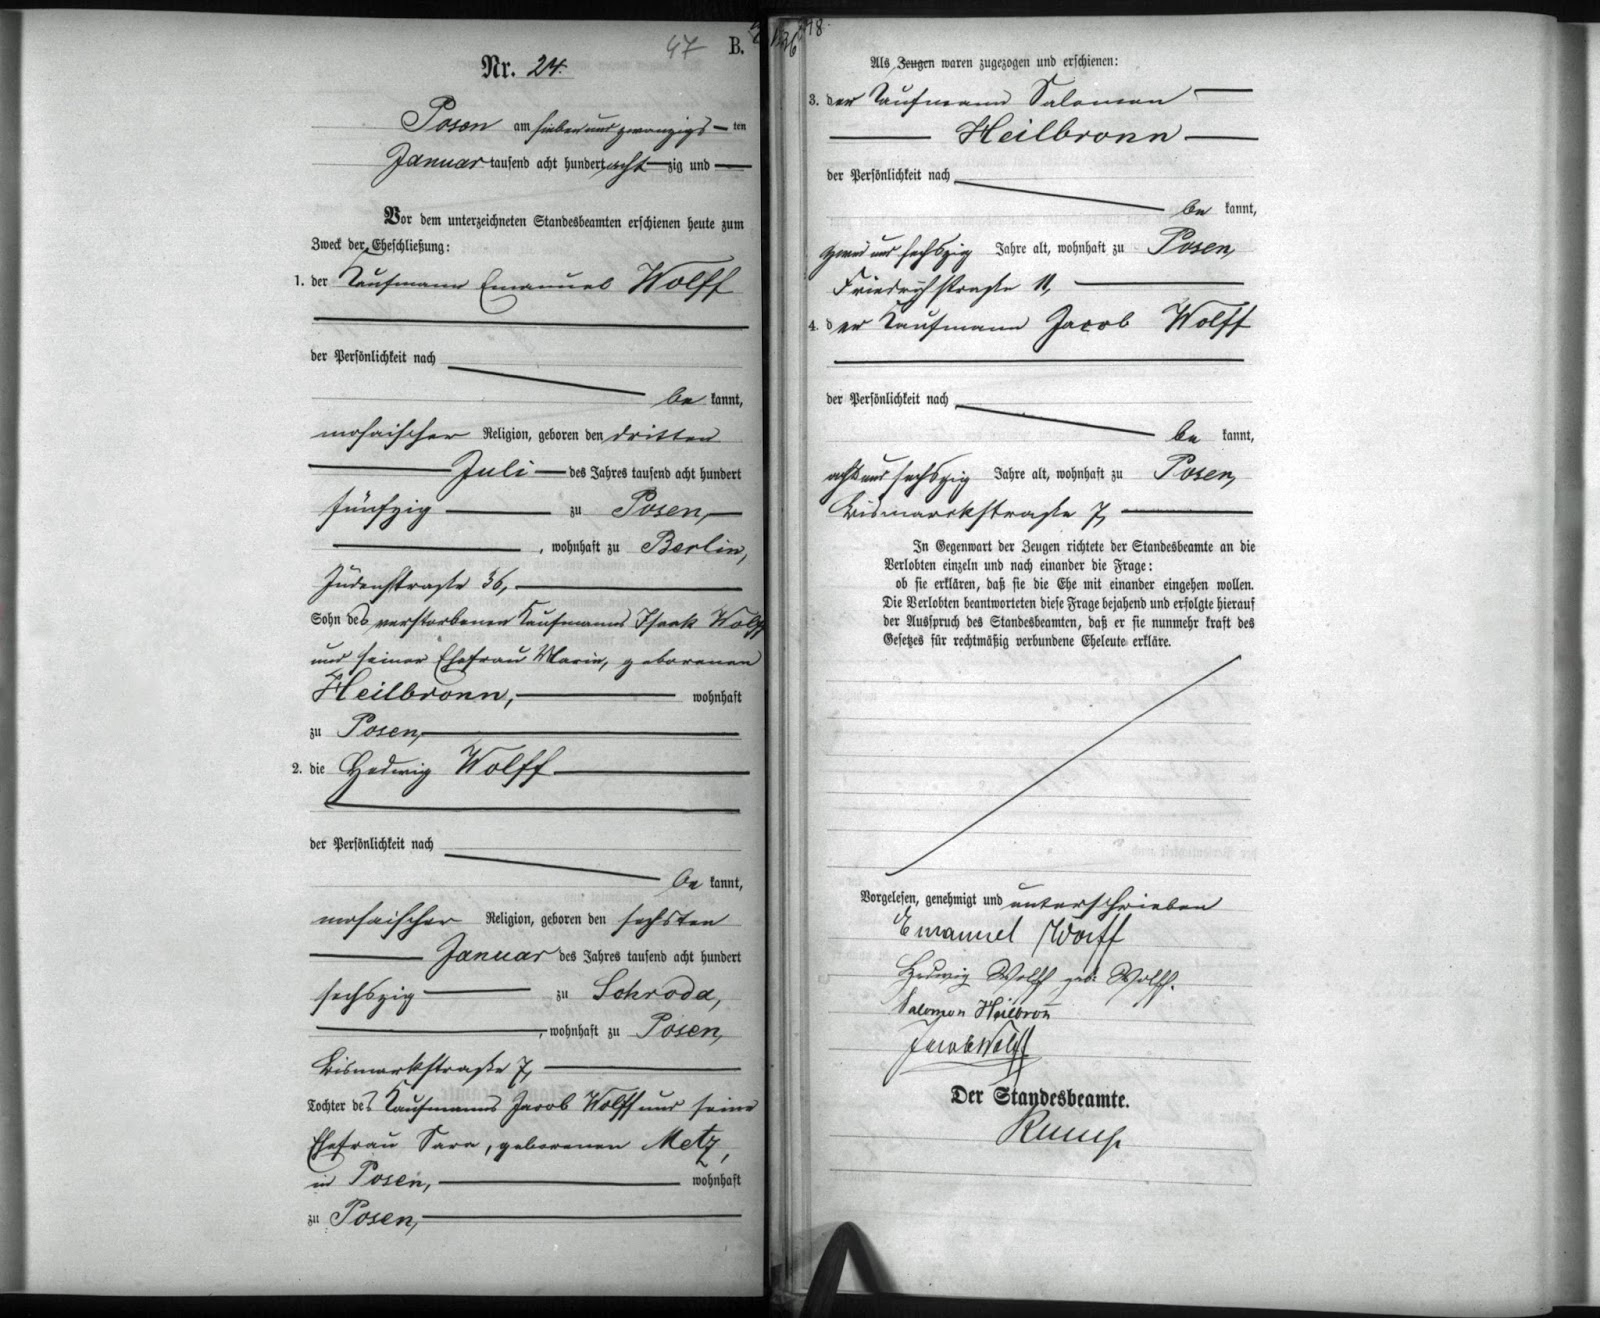 47 B.
Nr. 24.
Posen am sieben und zwanzigs ten
Januar tausend acht hundert acht zig und
Vor dem unterzeichneten Standesbeamten erschienen heute zum
Zweck der Eheschließung:
1. der Kaufmann Emanuel Wolff
der Persönlichkeit nach
be kannt,
mosaischer Religion, geboren den dritten
Juli des Jahres tausend acht hundert
fünfzig zu Posen,
, wohnhaft zu Berlin,
Jüdenstraße 36,
Sohn des verstorbenen Kaufmanns Isaak Wolff
und seiner Ehefrau Marie, geborenen
Heilbronn, wohnhaft
zu Posen,
2. die Hedwig Wolff
der Persönlichkeit nach
be kannt,
mosaischer Religion, geboren den sechsten
Januar des Jahres tausend acht hundert
sechszig zu Schroda,
, wohnhaft zu Posen,
Bismarckstraße 7,
Tochter des Kaufmanns Jacob Wolff und seine
Ehefrau Sara, geborenen Metz,
in Posen, wohnhaft
zu Posen,
Als Zeugen waren zugezogen und erschienen:
3. der Kaufmann Salomon
Heilbronn
der Persönlichkeit nach
be kannt,
zwei und sechszig Jahre alt, wohnhaft zu Posen,
Friedrichstraße 11,
4. der Kaufmann Jacob Wolff
der Persönlichkeit nach
be kannt,
acht und sechszig Jahre alt, wohnhaft zu Posen,
Bismarckstraße 7,
In Gegenwart der Zeugen richtete der Standesbeamte an die
Verlobten einzeln und nach einander die Frage:
ob sie erklären, daß sie die Ehe mit einander eingehen wollen.
Die Verlobten beantworteten diese Frage bejahend und erfolgte hierauf
der Ausspruch des Standesbeamten, daß er sie nunmehr kraft des
Gesetzes für rechtmäßig verbundene Eheleute erkläre.
Vorgelesen, genehmigt und unterschrieben
Emanuel Wolff
Hedwig Wolff geb. Wolff.
Salomon Heilbronn
Jacob Wolff
Der Standesbeamte.